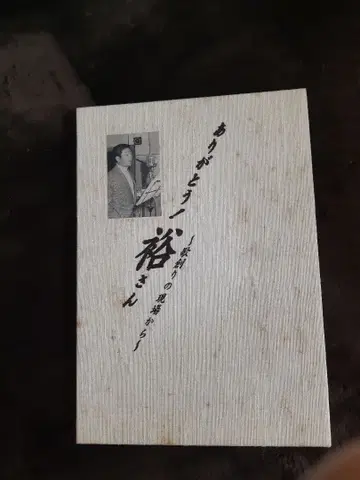 ありがとう！
裕さん
～歌創りの現場から～